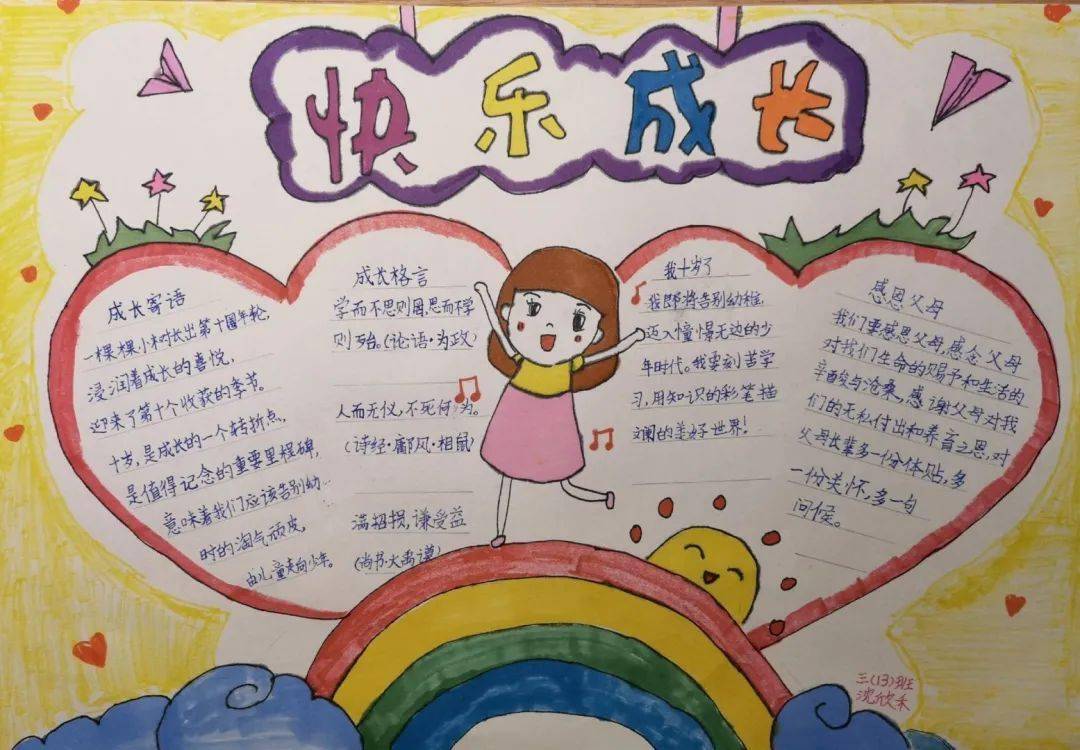 快乐成长
成长寄语
一棵棵小树长出第十圈年轮,
浸润着成长的喜悦,
迎来了第十个收获的季节。
十岁,是成长的一个转折点,
是值得记念的重要里程碑,
意味着我们应该告别幼
时的淘气顽皮,
由儿童走向少年。
成长格言
学而不思则罔,思而不学
则殆。(论语·为政)
人而无仪,不死何为。
(诗经·鄘风·相鼠)
满招损,谦受益
(尚书·大禹谟)
我十岁了
我即将告别幼稚,
迈入憧憬无边的少
年时代。我要刻苦学
习,用知识的彩笔描
斓的美好世界!
感恩父母
我们要感恩父母,感念父母
对我们生命的赐予和生活的
辛酸与沧桑,感谢父母对我
们的无私付出和养育之恩,对
父母长辈多一份体贴,多
一份关怀,多一句
问候。
三(13)班
沈欣禾